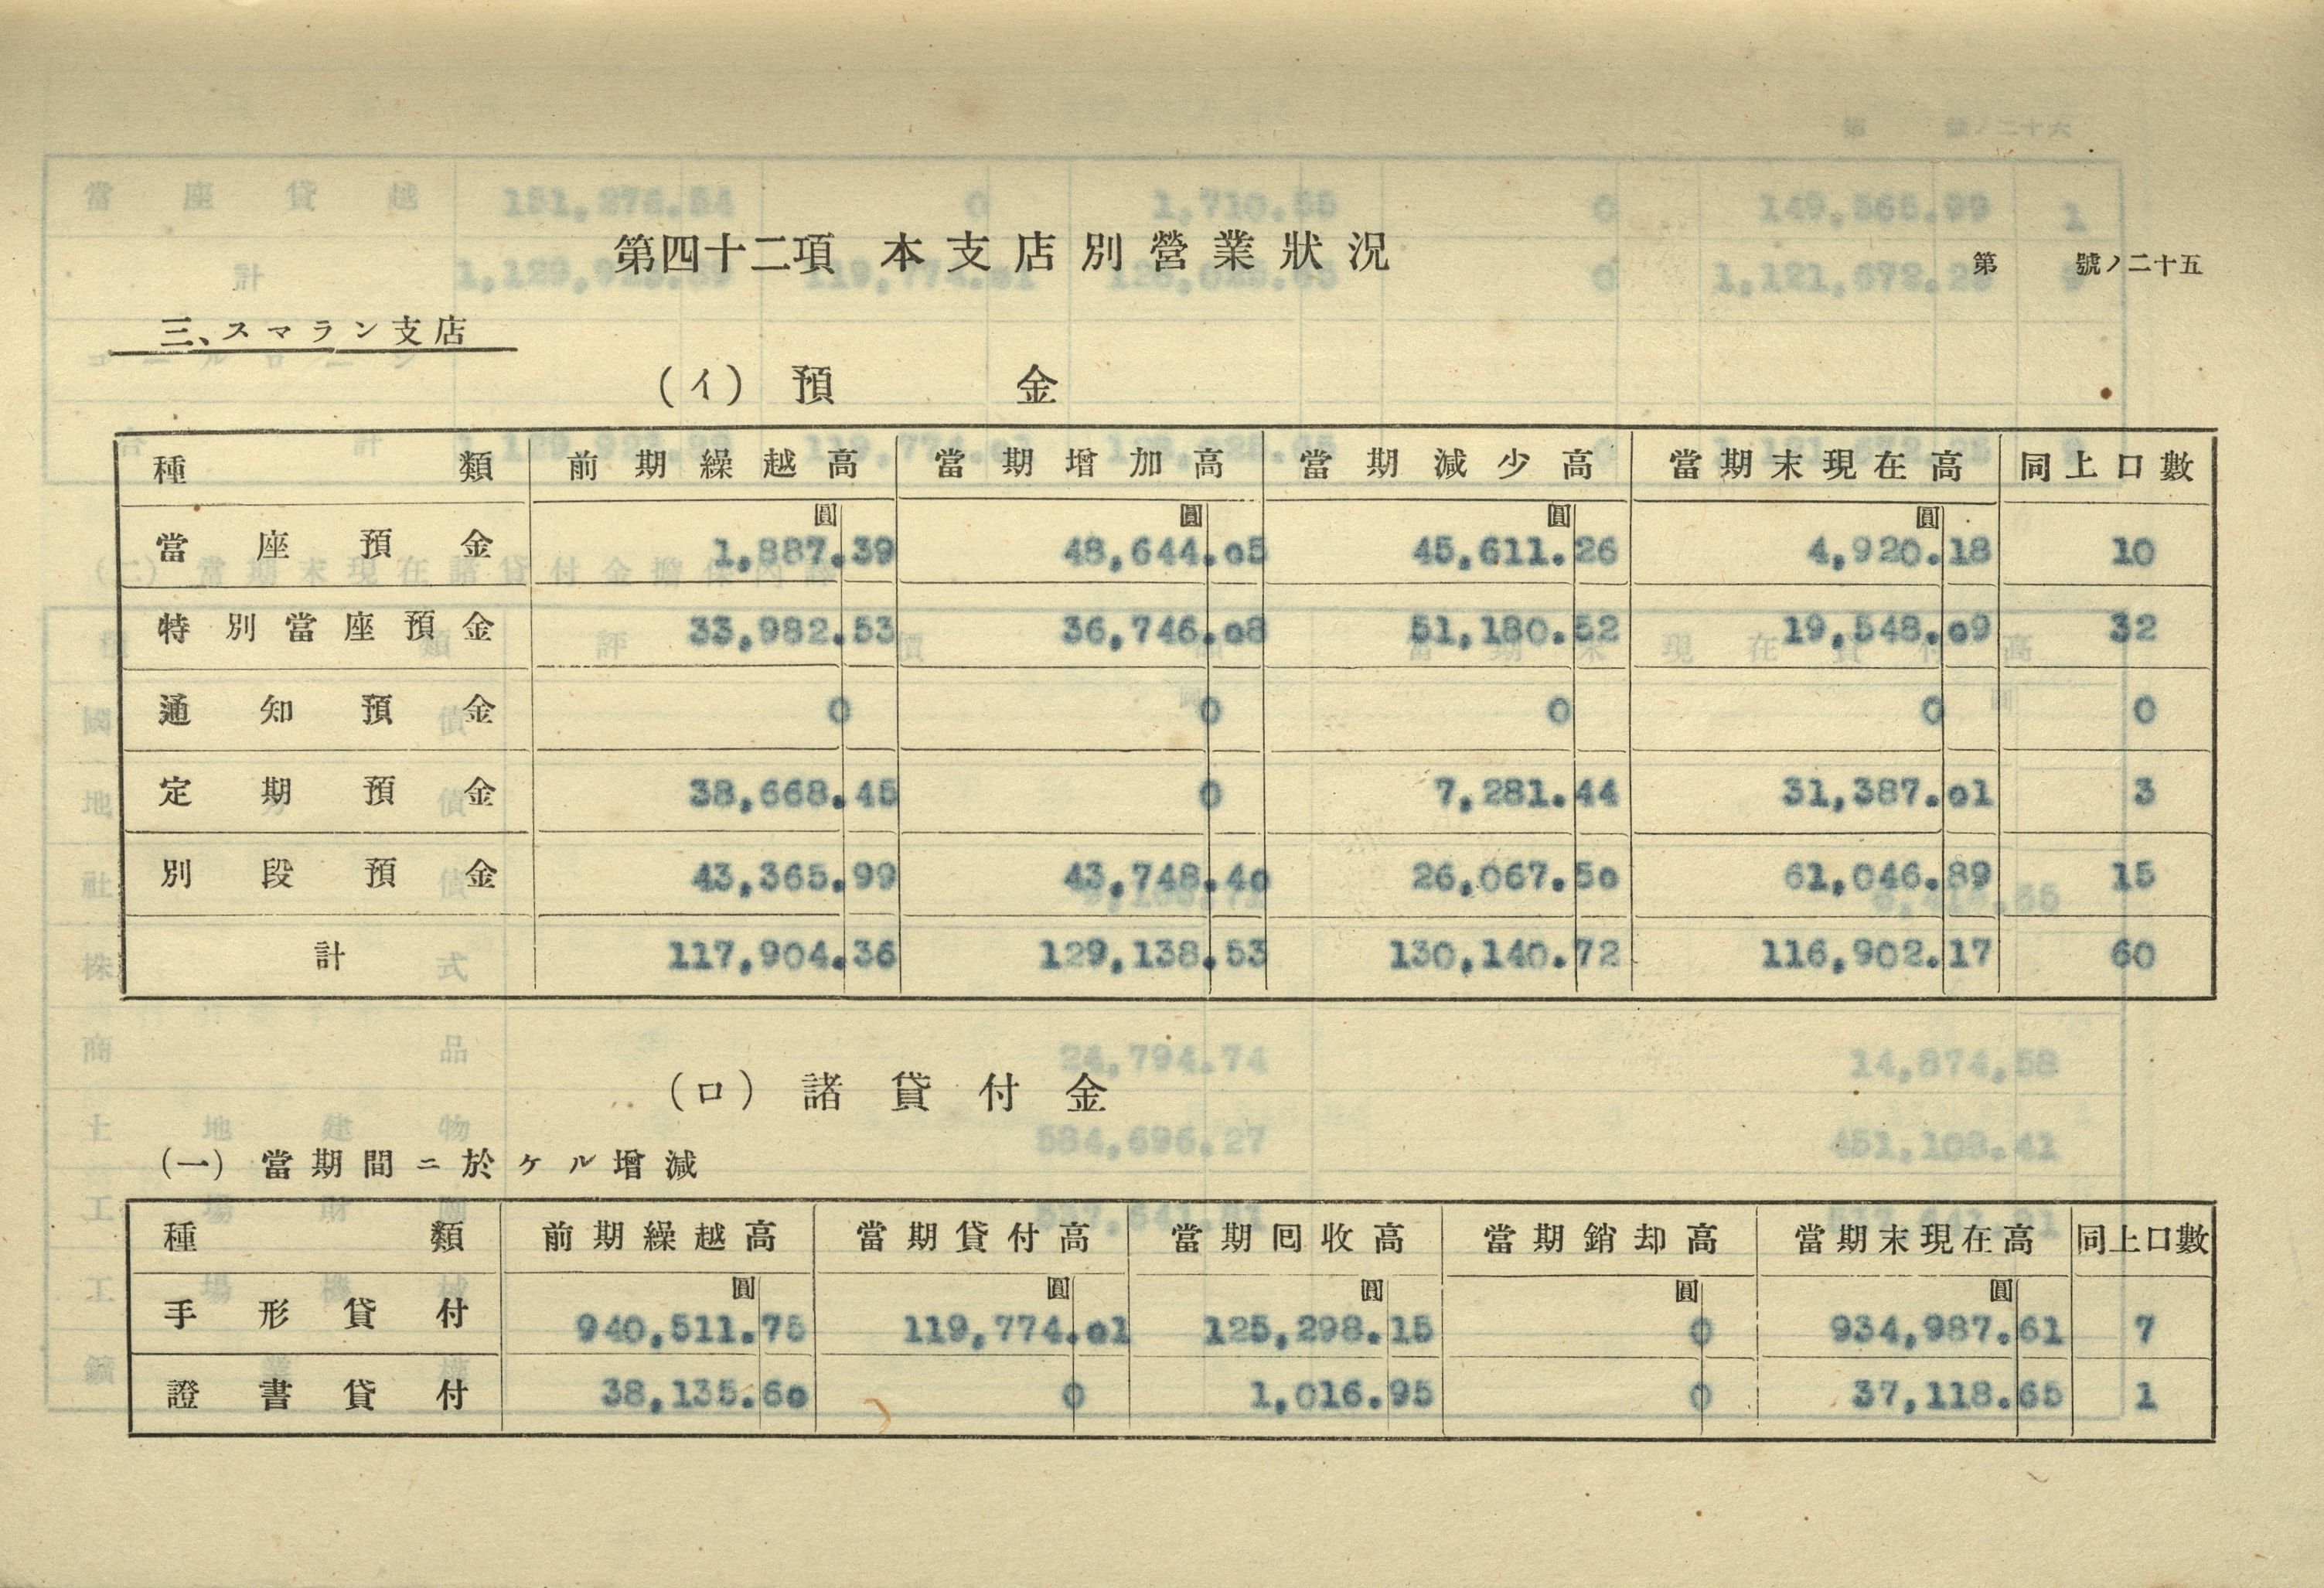 第四十二項 本支店別營業狀況
第 號ノ二十五
三、スマラン支店
(イ) 預金
種類 前期繰越高 當期增加高 當期減少高 當期末現在高 同上口數
圓 圓 圓 圓
當座預金 1,887.39 48,644.05 45,611.26 4,920.18 10
特別當座預金 33,982.53 36,746.08 51,180.52 19,548.09 32
通知預金 0 0 0 0 0
定期預金 38,668.45 0 7,281.44 31,387.01 3
別段預金 43,365.99 43,748.40 26,067.50 61,046.89 15
計 117,904.36 129,138.53 130,140.72 116,902.17 60
(ロ) 諸貸付金
(一) 當期間ニ於ケル增減
種類 前期繰越高 當期貸付高 當期囘收高 當期銷却高 當期末現在高 同上口數
圓 圓 圓 圓 圓
手形貸付 940,511.75 119,774.01 125,298.15 0 934,987.61 7
證書貸付 38,135.60 0 1,016.95 0 37,118.65 1